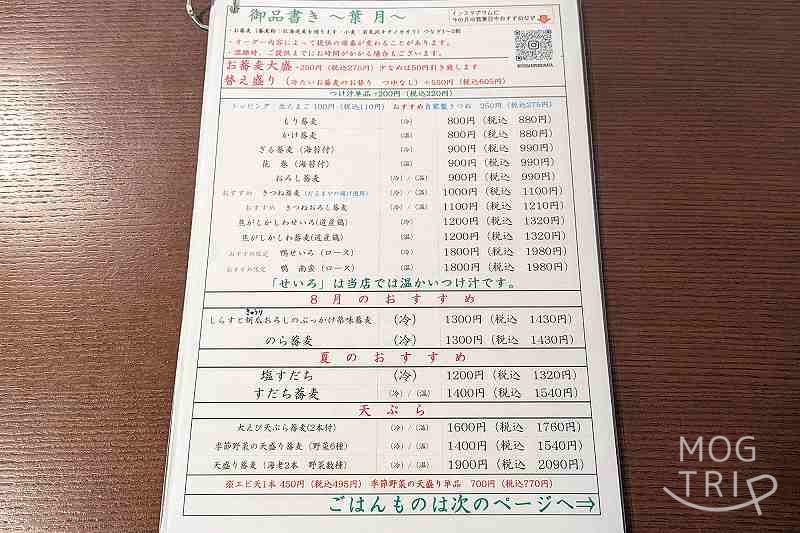 御品書き ～葉月～
インスタグラムに
今の月の営業日やおすすめなど
・オーダー内容によって提供の順番が変わることがあります。
・混雑時、ご提供までにお時間がかかる場合もございます。
お蕎麦大盛 +250円（税込275円）少なめは50円引き致します
替え盛り（冷たいお蕎麦のお替り つゆなし）+550円（税込605円）
つけ汁単品 +200円（税込220円）
トッピング 生たまご 100円（税込110円） おすすめ自家製きつね 250円（税込275円）
もり蕎麦 （冷） 800円（税込 880円）
かけ蕎麦 （温） 800円（税込 880円）
ざる蕎麦（海苔付） （冷） 900円（税込 990円）
花巻（海苔付） （温） 900円（税込 990円）
おろし蕎麦 （冷）/（温） 900円（税込 990円）
おすすめ きつね蕎麦 （冷）/（温） 1000円（税込 1100円）
おすすめ きつねおろし蕎麦 （冷）/（温） 1100円（税込 1210円）
焦がしかしわせいろ(道産鶏) （冷） 1200円（税込 1320円）
焦がしかしわ蕎麦(道産鶏) （温） 1200円（税込 1320円）
おすすめ限定 鴨せいろ（ロース） （冷） 1800円（税込 1980円）
おすすめ限定 鴨 南蛮（ロース） （温） 1800円（税込 1980円）
「せいろ」は当店では温かいつけ汁です。
8月のおすすめ
きゅうり
しらすと胡瓜おろしのぶっかけ蕎麦 （冷） 1300円（税込 1430円）
のら蕎麦 （冷） 1300円（税込 1430円）
夏のおすすめ
塩すだち （冷） 1200円（税込 1320円）
すだち蕎麦 （冷）/（温） 1400円（税込 1540円）
天ぷら
大えび天ぷら蕎麦(2本付) （冷）/（温） 1600円（税込 1760円）
季節野菜の天盛り蕎麦（野菜6種） （冷）/（温） 1400円（税込 1540円）
天盛り蕎麦（海老2本 野菜数種） （冷）/（温） 1900円（税込 2090円）
※エビ天1本 450円（税込495円） 季節野菜の天盛り単品 700円（税込770円）
ごはんものは次のページへ⇒
MOG
TRIP